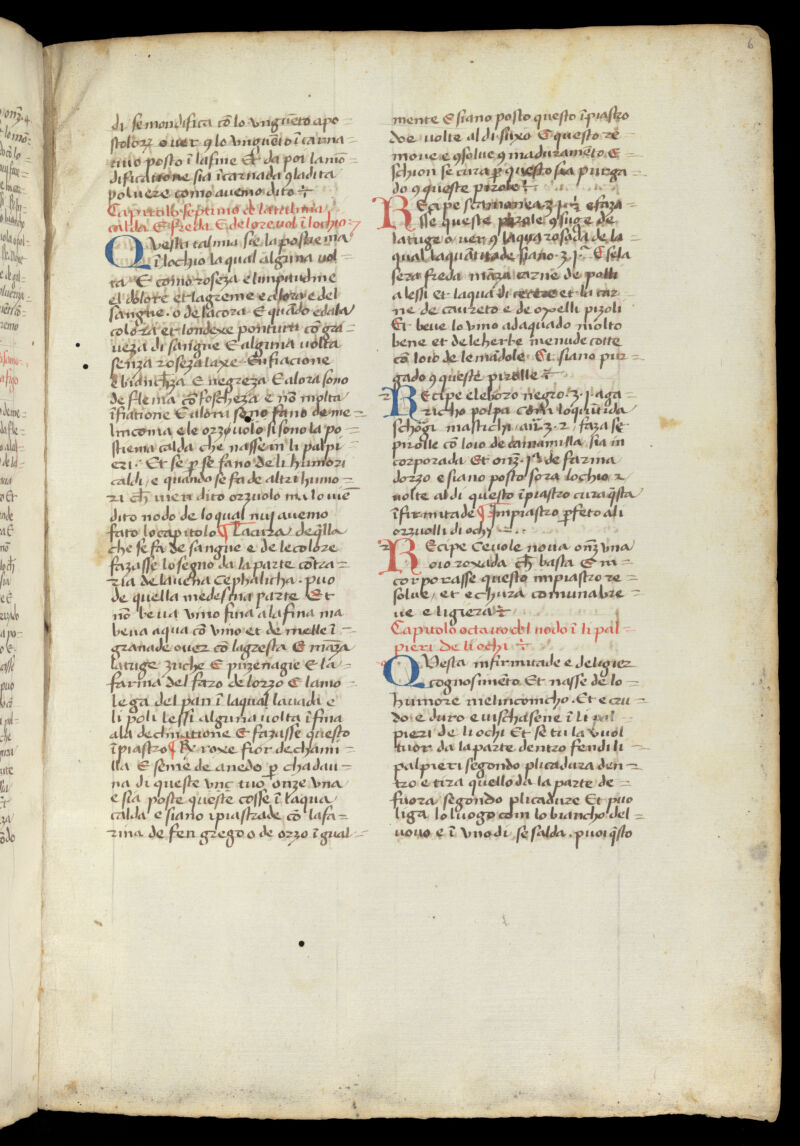 6
di se mondifica cō lo vnguēto apo=
stolorꝫ over ꝯ lo vnguēto ī carna=
tivo posto ī la fine Et da poi la mō=
dificatione sia ī carnada ꝯ la dita
polvere como avemo dito
Capitolo septimo de la
calda E freda E de lore vol ī lochio
Questa si e la postiema
ī lochio la qual alguna vol=
ta E como roseza e
el dolore et lagreme e alora e del
sangue o de la cora E quādo e da la
colora et londexe ponture cō gra=
veza di sangue E alguna volta
senza roseza laxe Enfiacione
e biancheza e negreza E alora sono
de flema cō foscheza e nō molta
īfiatione E alora sono fano de me=
linconia e le orzvolo si sono la po=
stiema calda che nasse in li palpi
eri. Et se per se fano de li humori
caldi e quando se fa de altri humo=
ri cħ vien dito orzvolo ma lo viē
dito nodo de lo qual nuj avemo
fato lo capitolo ¶ La cura de q̄lla
che se fa de sangue e de le colore
fazasse lo segno da la parte cōtra=
ria de la vena cephalicha. puo
de quella medesma parte Et
nō beva vino fina a la fina ma
beva aqua cō vino et de melle ī=
granade over cō lagresta E manza
latuge zuche E e la=
farina del faro de lorzo E la mo=
lega del pan ī la qual lavadi e
li poli lessi alguna volta īfina
a la declinatione E fazasse questo
īpiastro ¶ Rx roxe fior de chami=
lla E semēe de anedo ꝑ chadau=
na di queste vnc tuo onze vna
e sia poste queste cosse ī laqua
calda e siano īpiastrade cō la fa=
rina de fen grego o de orzo ī gual=
mente E siano posto questo īpiastro
doe volte al di suxo E questo re=
move e ꝯsolve ꝯ maduramēto E
schion se cura ꝑ questo sia purga=
do ꝯ queste pirole
Recipe scamonea e faza=
sse queste pirole ꝯ suge de
latuge o ver ꝯ laqua rosada de la
qual la quātitade siano E se la
sera freda manza carne de polli
alessi et laqua di cecere et la car=
ne de cavreto e de oxelli pizoli
Et beve lo vino adaquado molto
bene et de le herbe menude cotte
cō loio de le mādole Et siano pur=
gado ꝯ queste pirolle
Recipe eleboro negro ꝫ 1 aga=
richo polpa coloquītida
mastichi faza se
pirolle cō loio de camamilla sia in
corporada Et onꝫ de farina
dorzo e siano posto sora lochio 2
volte al di questo īpiastro cura q̄sta
īfirmitade ¶ Impiastro ꝑfeto a li
orzvolli di ochi
Recipe Cevole nova onz vna
oio roxado cħ basta E in
corporasse questo impiastro re=
solve et e chura comunabre=
ve e ligiera
Capitolo octavo del nodo ī li pal=
pieri de li ochi
Questa infirmitade e de ligier
cognosimēto Et nasse de lo=
humore melinconicho. Et e cru=
do e duro e vischasene ī li pal=
pieri de li ochi Et se tu la vuol
tuor da la parte dentro fendi li
palpieri segondo plicadura den=
tro e tira quello da la parte de=
fuora segondo plicadure Et puo
liga lo luogo com lo biancho del=
uovo e ī vno di se salda. puoi q̄sto